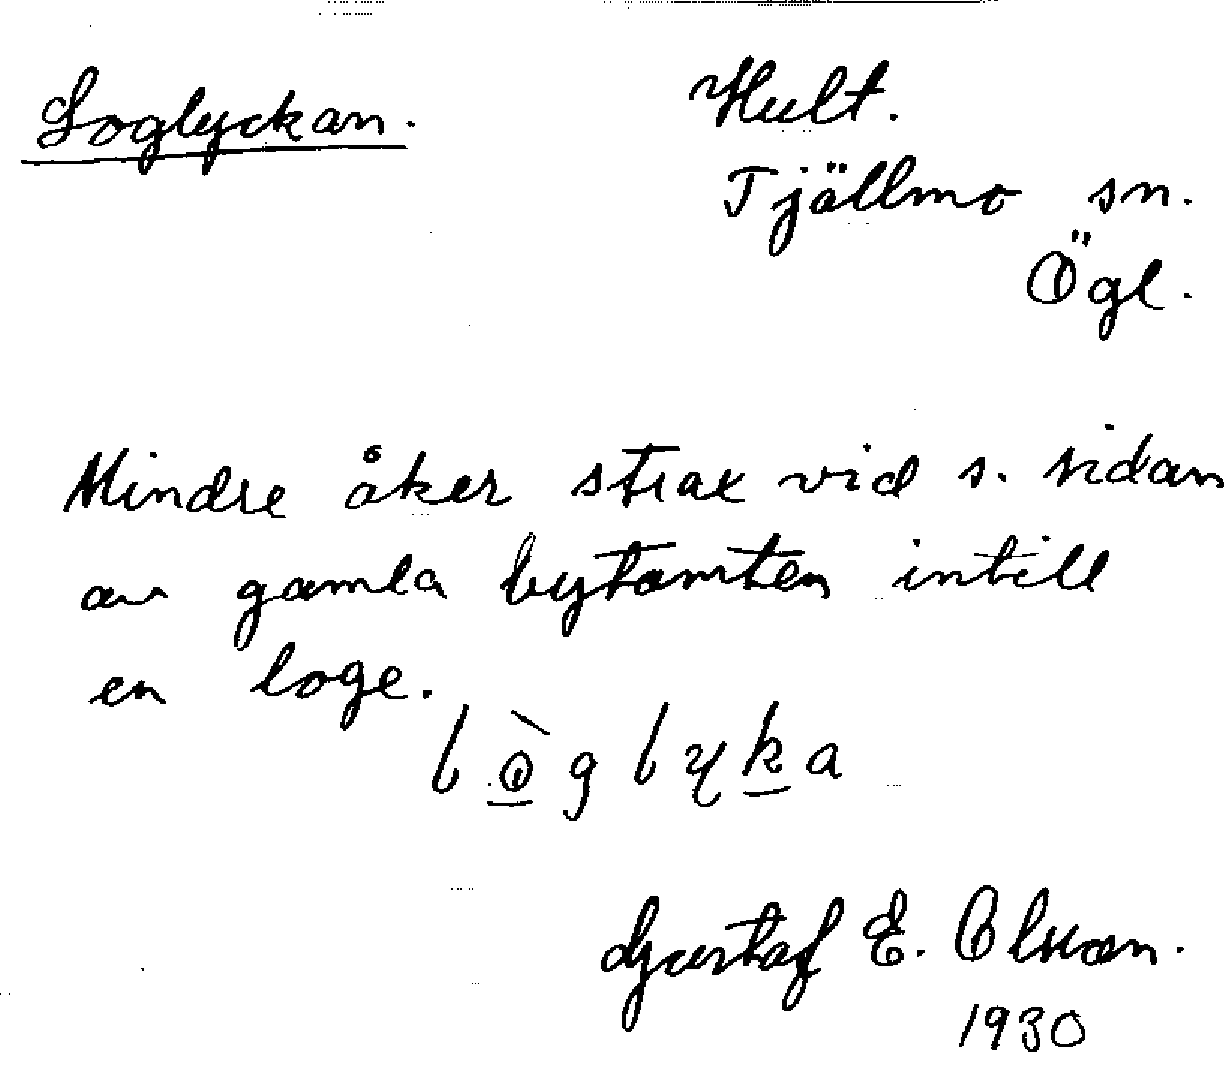 Loglyckan.
Hult.
Tjällmo sn.
Ögl.
Mindre åker strax vid s. sidan
av gamla bytomten intill
en loge.
lòglyka
Gustaf E. Olsson.
1930